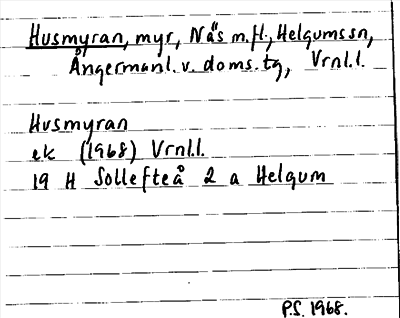 Husmyran, myr, Näs m.fl., Helgumssn,
Ångermanl. v. doms. tg, Vrnl.l.
Husmyran
ek (1968) Vrnl.l.
19 H Sollefteå 2 a Helgum
P.S. 1968.